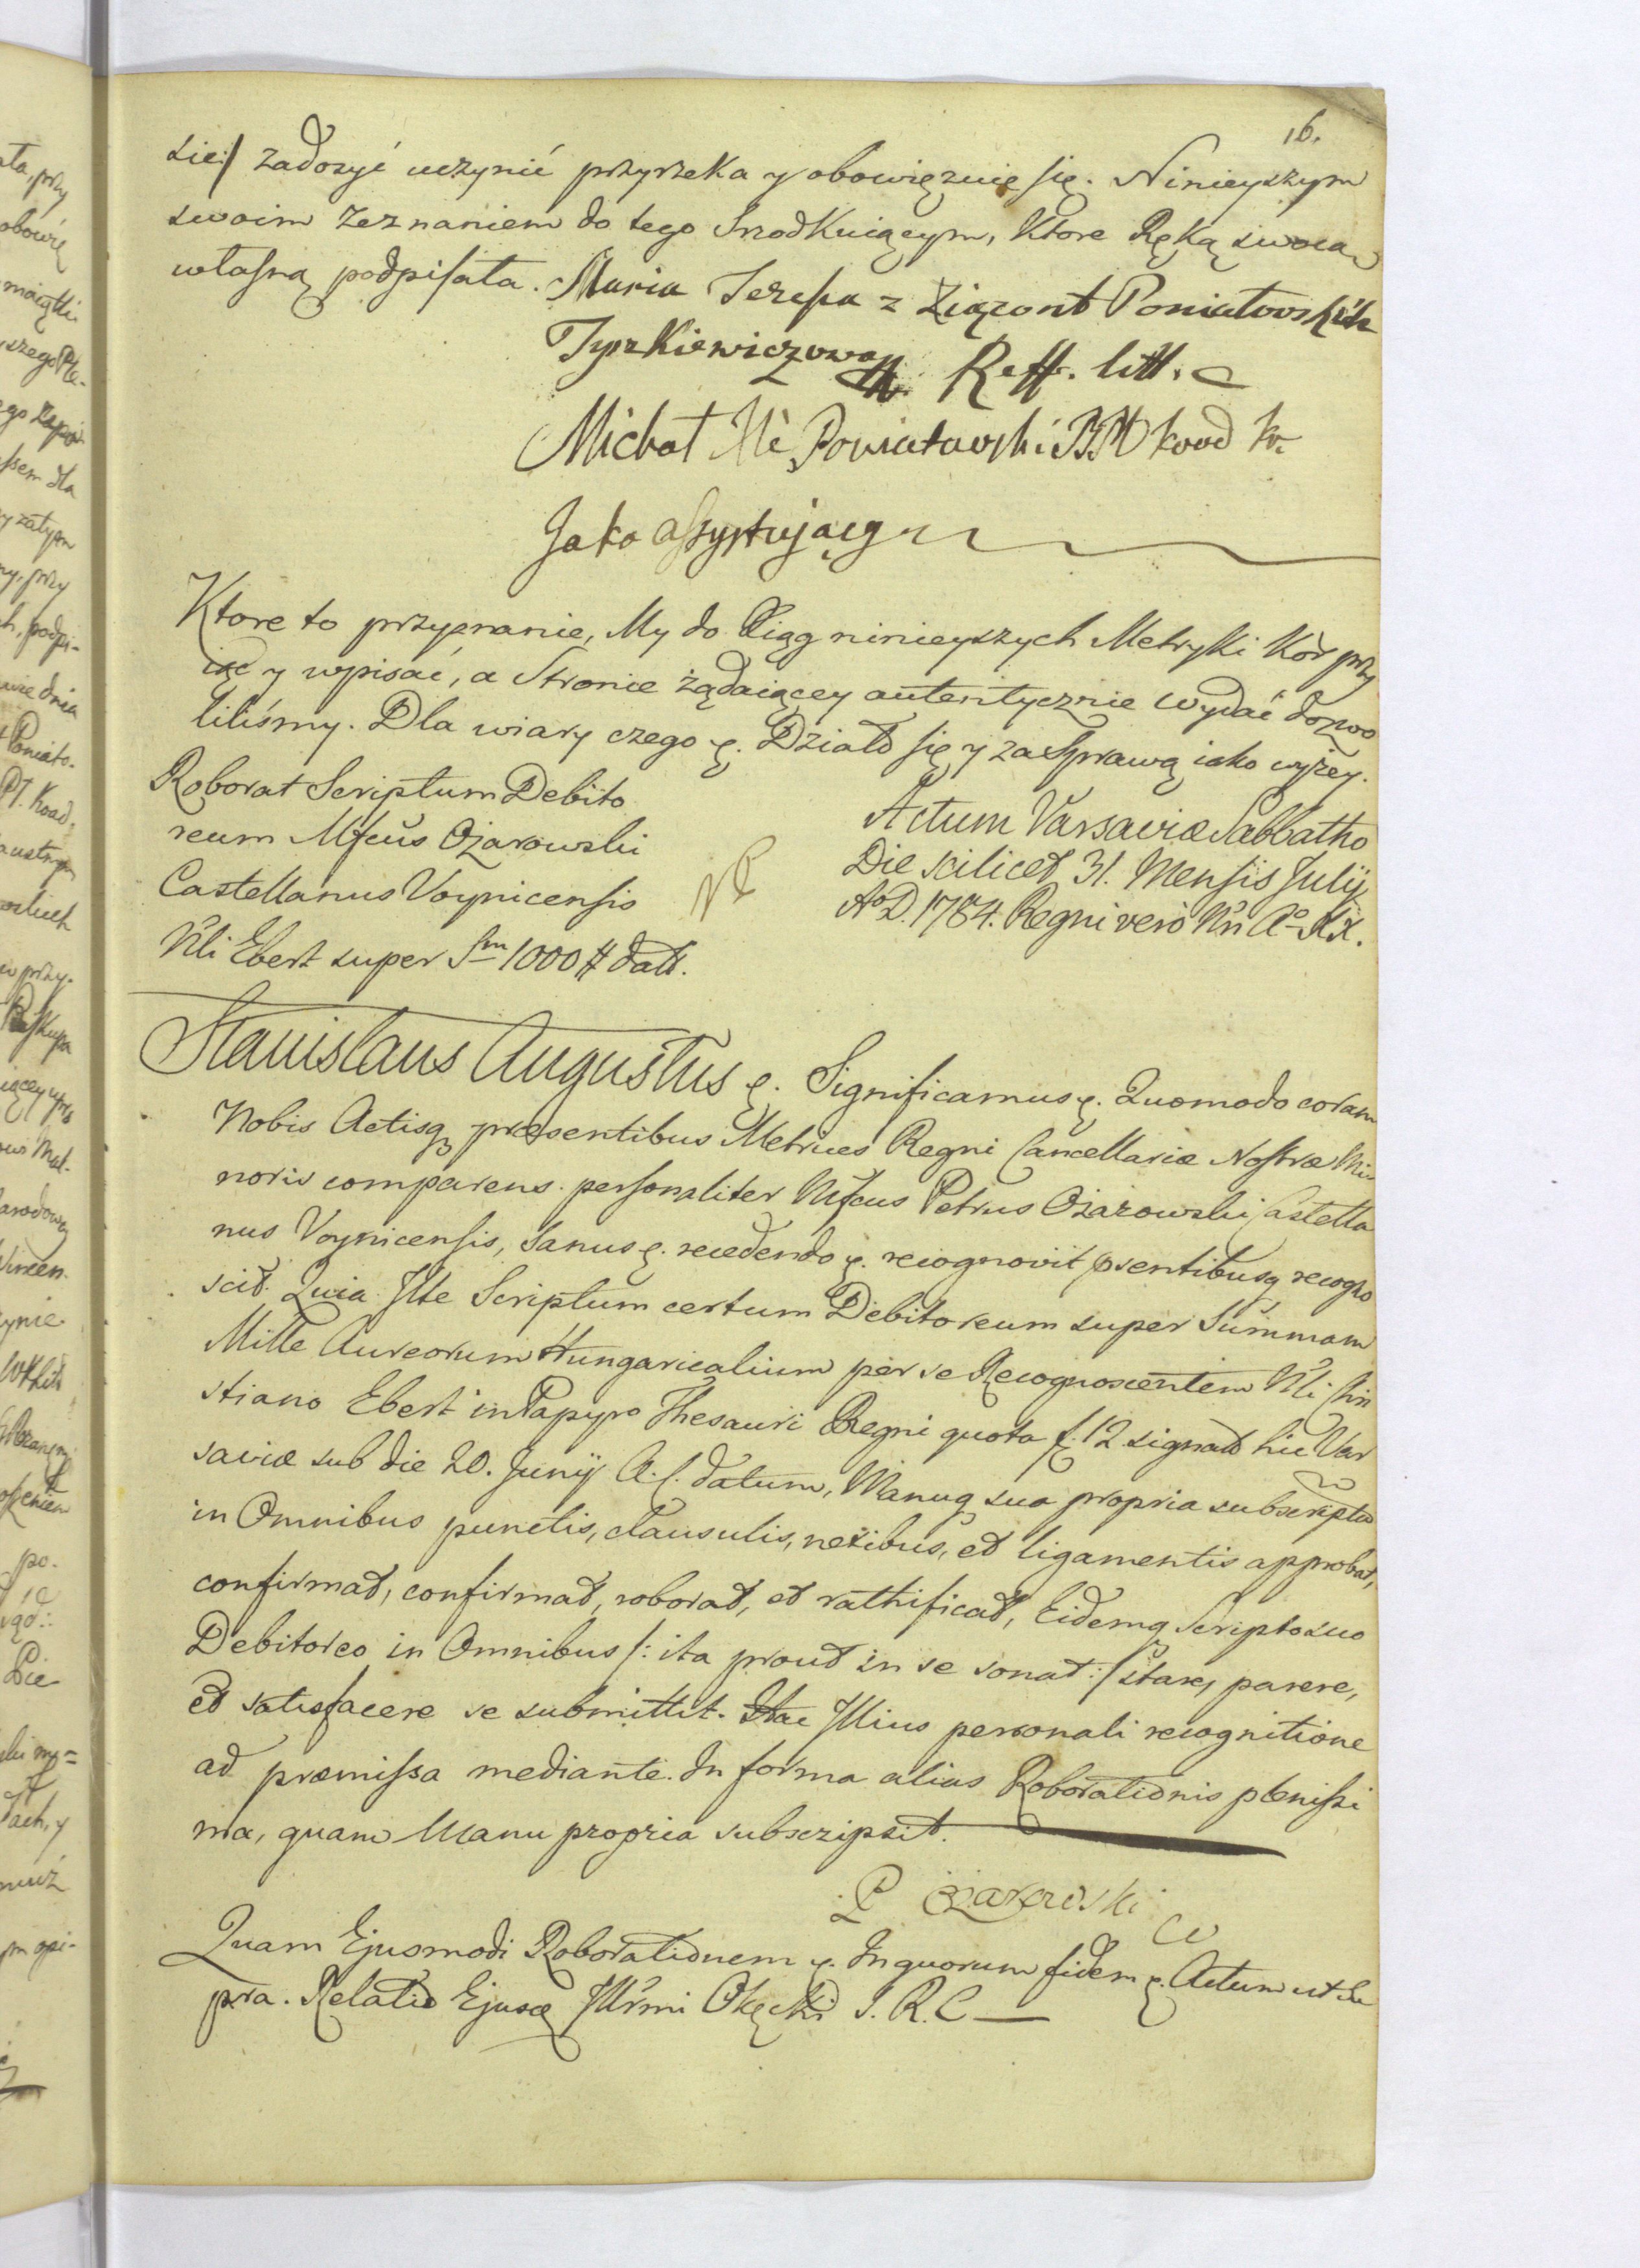 16.
sie:/ zadosyć uczynić przyrzeka y obowięzuię się. Ninieyszym
swoim zeznaniem do tego Srzodkuiącym, Ktore Ręką swoią
własną podpisała. Maria Teresa z Xiązont Poniatovskich
Tyszkiewiczowa Reff. litt.
Michał Xże Poniatowski BP koad kr
Jako assystujący
Ktore to przyznanie, My do Xiąg ninieyszych Metryki Kor przy
iąć y wpisać, a Stronie żądaiącey autentycznie wydać dozwo
liliśmy. Dla wiary czego ę. Działo się y za Sprawą iako wyżey.
Roborat Scriptum Debito
reum Mfcus Ożarowski
Castellanus Voynicensis
Nli Ebert super Sm 1000 # datt.
Actum Varsaviæ Sabbatho
Die scilicet 31. Mensis Julij
Ao D. 1784. Regni vero Nri Ao XX.
Stanislaus Augustus ę. Significamus ę. Quomodo coram
Nobis Actisq præsentibus Metrices Regni Cancellariæ Nostræ Mi
noris comparens personaliter Mfcus Petrus Ożarowski Castella
nus Voynicensis, Sanus ę. recedendo ę. recognovit psentibusq recogno
scit. Quia Ille Scriptum certum Debitoreum super Summam
Mille Aureorum Hungaricalium per se Recognoscentem Nli Chri
stiano Ebert in Papyro Thesauri Regni quota f. 12 signato hic Var
saviæ sub die 20. Junij A. C. datum, Manuq sua propria subscriptum
in Omnibus punctis, clausulis, nexibus, et ligamentis approbat,
confirmat, confirmat, roborat, et rathificat, Eidemq Scripto suo
Debitoreo in Omnibus /: ita prout in se sonat :/ stare, parere,
et satisfacere se submittit. Hac Illius personali recognitione
ad præmissa mediante. In forma alias Roborationis plenissi
ma, quam Manu propria subscripsit.
P Ożarowski
CW
Quam Ejusmodi Roborationem ę. In quorum fidem ę. Actum ut Su
pra. Relatio Ejusq Illrmi Okęcki S. R. C